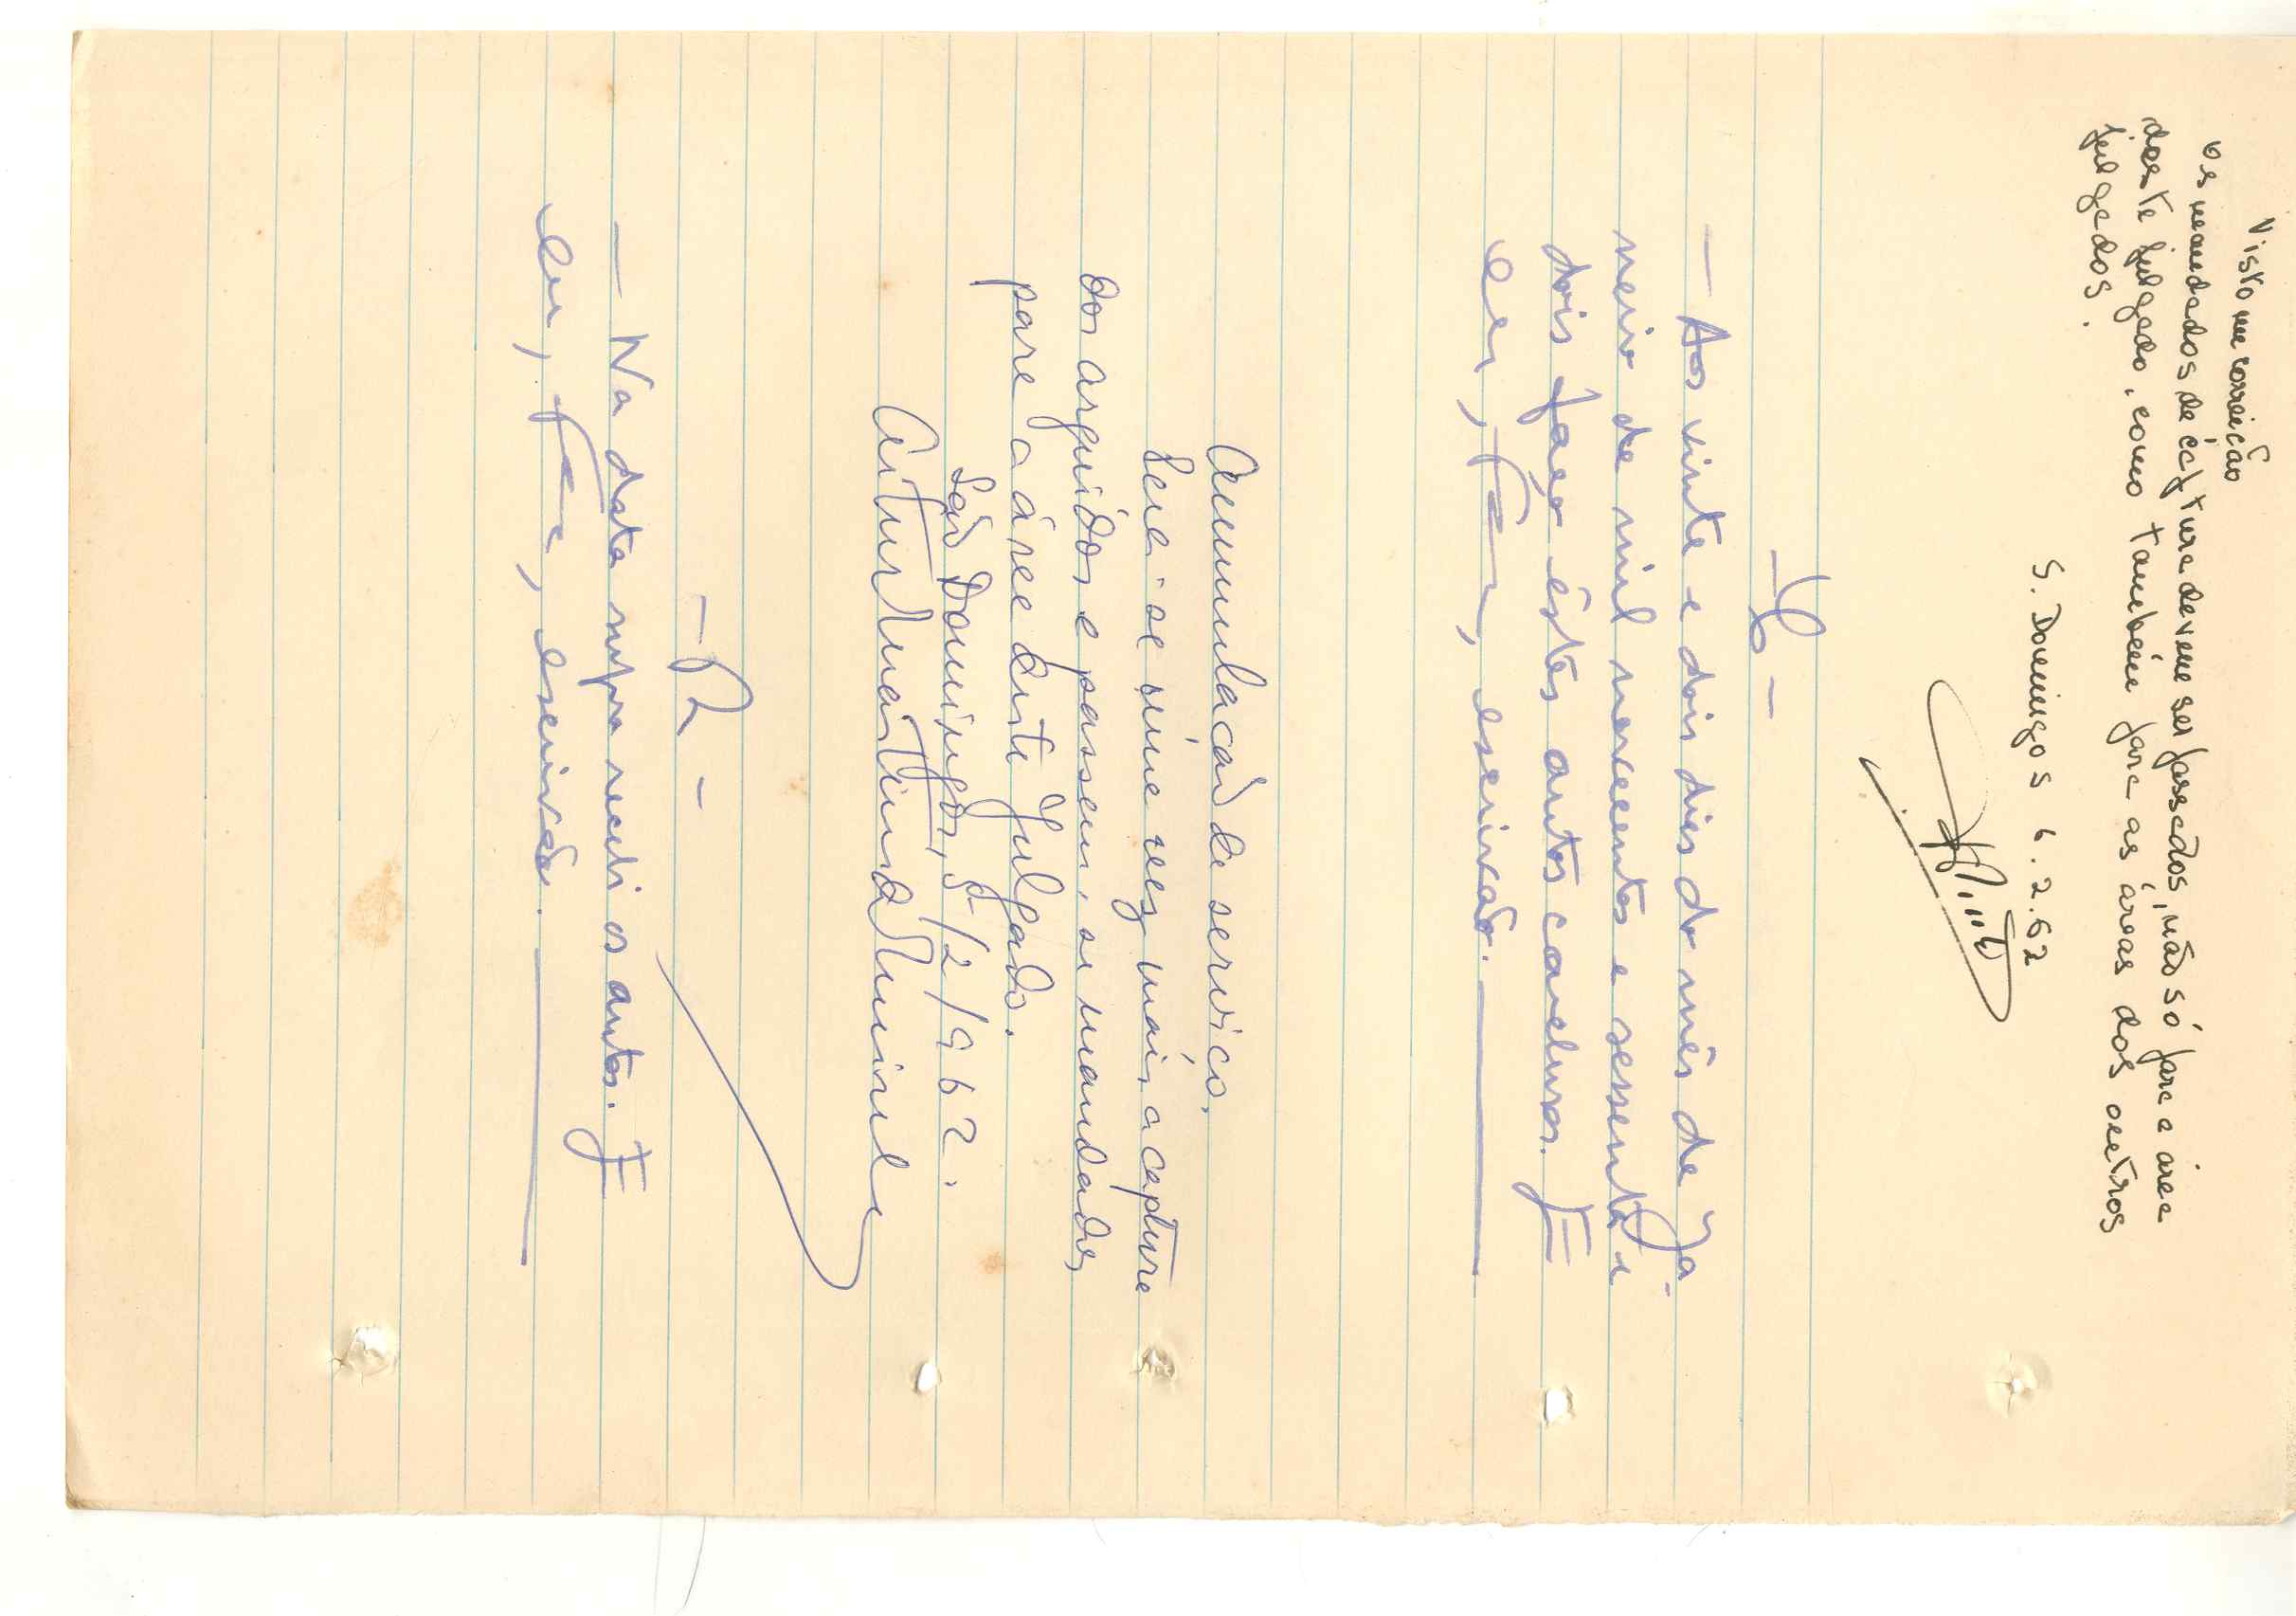 Visto em correição
os mandados de captura devem ser passados, não só para a área
deste julgado, como também para as áreas dos outros
julgados.
S. Domingos 6.2.62
- C -
- Aos vinte e dois dias do mês de Ja-
neiro de mil novecentos e sessenta e
dois faço êstes autos conclusos. E
eu, escrivão.
Acumulação de serviço.
-se uma vez mais, a captura
dos arguidos e passem-se mandados
para a área deste Julgado.
São Domingos, 5/2/962.
- R -
- Na data supra recebi os autos. E
eu, escrivão.